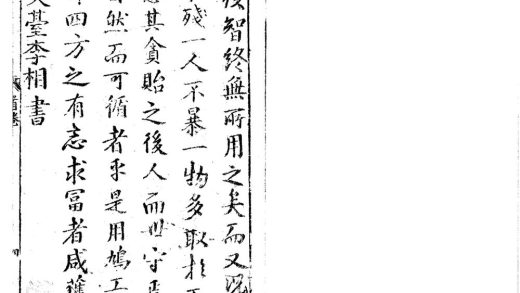 智終無所用之矣而又
殘一人不暴一物多取於
其貪貽之後人而世守
然而可循者乎是用鳩工
四方之有志求富者咸
臺李相書
首卷